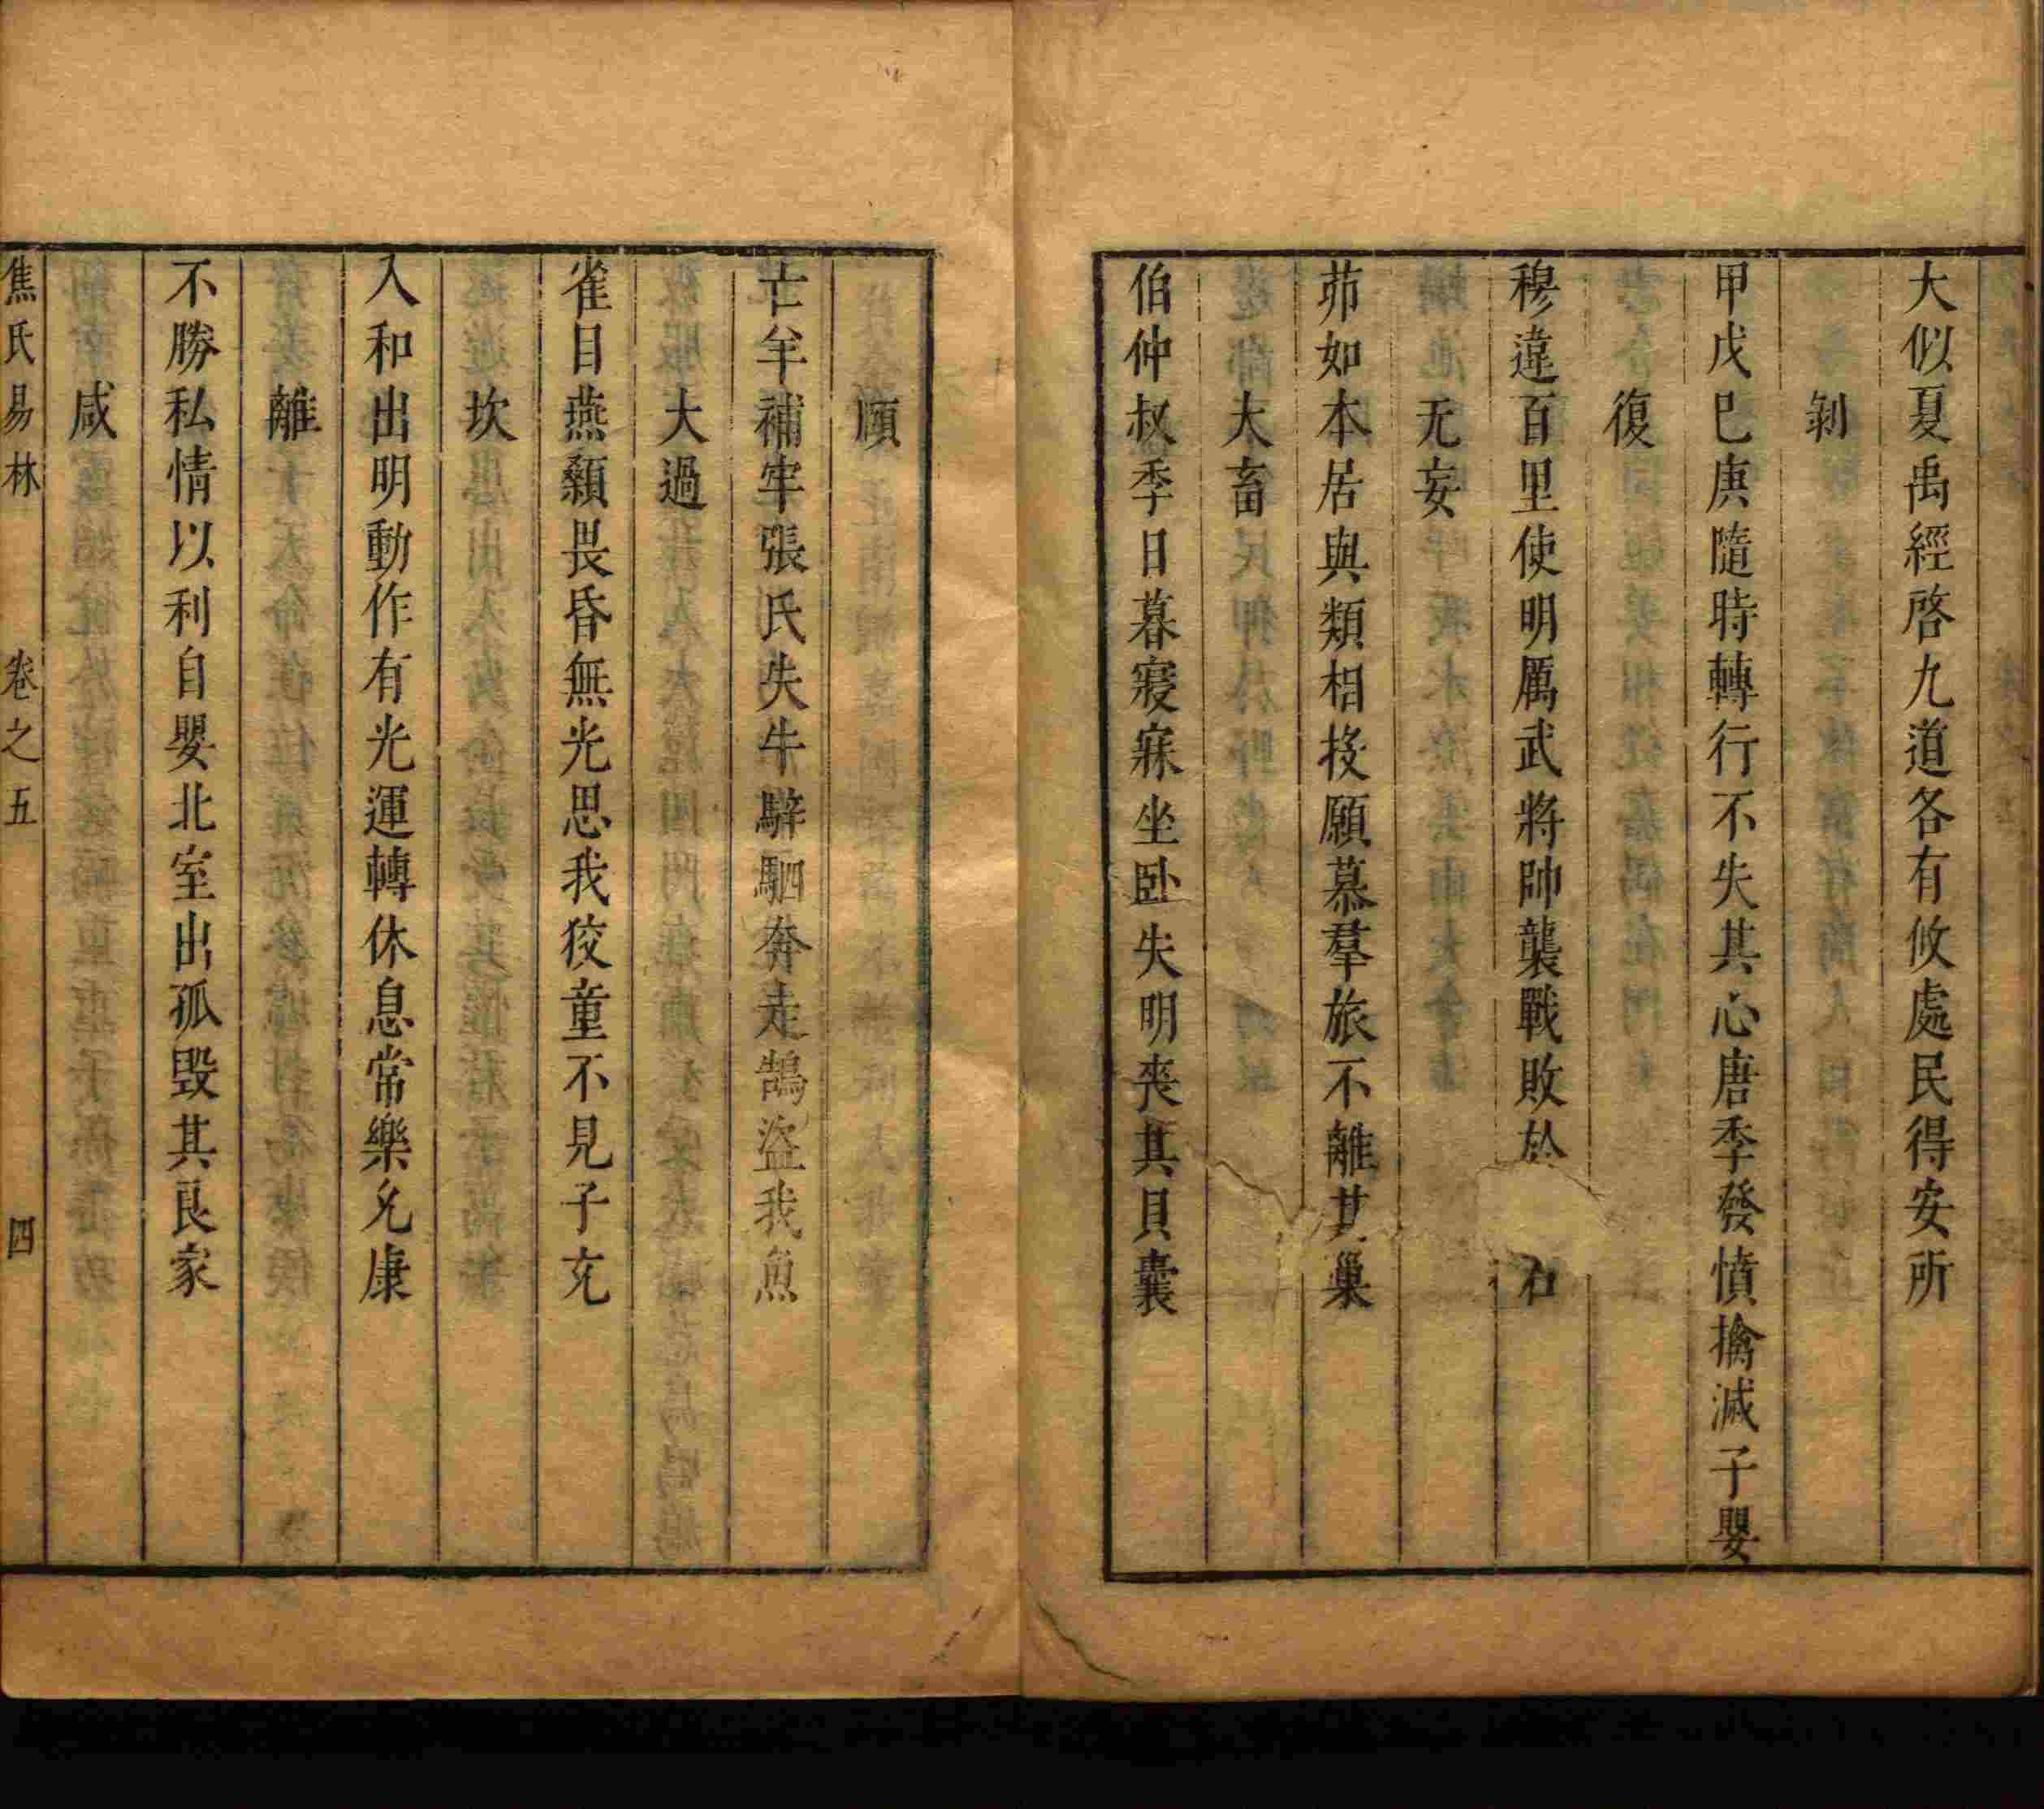 大似夏禹經啓九道各有攸處民得安所
剝
甲戊巳庚隨時轉行不失其心唐季發憤擒滅子嬰
復
穆違百里使明厲武將帥襲戰敗於
右
无妄
茆如本居與類相投願慕羣旅不離其巢
大畜
伯仲叔季日暮寢寐坐卧失明喪其貝囊
頤
亡羊補牢張氏失牛騂駟奔走鵠盜我魚
大過
雀目燕額畏昏無光思我狡童不見子充
坎
入和出明動作有光運轉休息常樂允康
離
不勝私情以利自嬰北室出孤毀其良家
咸
焦氏易林 卷之五 四